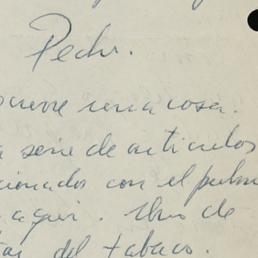 Pedro.
ocurre una cosa.
a serie de articulos
cionados con el pulm
aqui. Uno de
del tabaco.